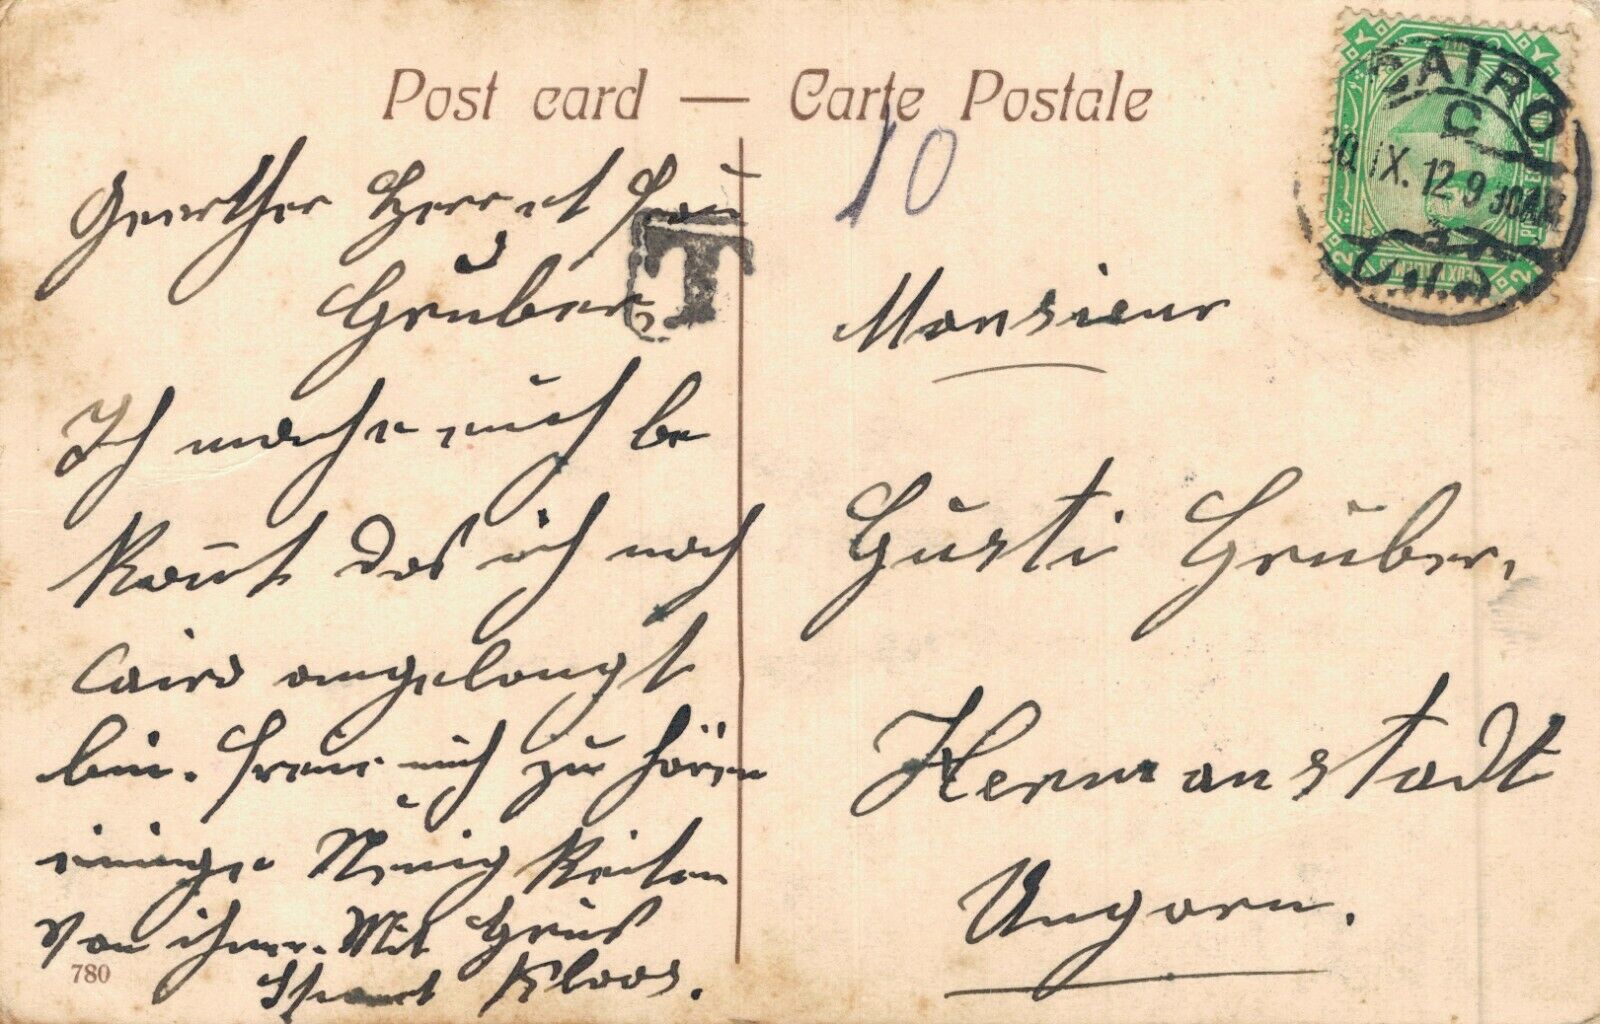 Post card — Carte Postale
10
CAIRO
C
30.IX.12 9 30AM
T
Geerther Herr et Frau
Gruber
Ich mache euch be
kannt das ich nach
Cairo angelangt
bin. Freue mich zu hören
einige Neuigkeiten
von ihnen. Mit Grus
Kloos.
780
Monsieur
Gusti Gruber,
Hermanstadt
Ungarn.